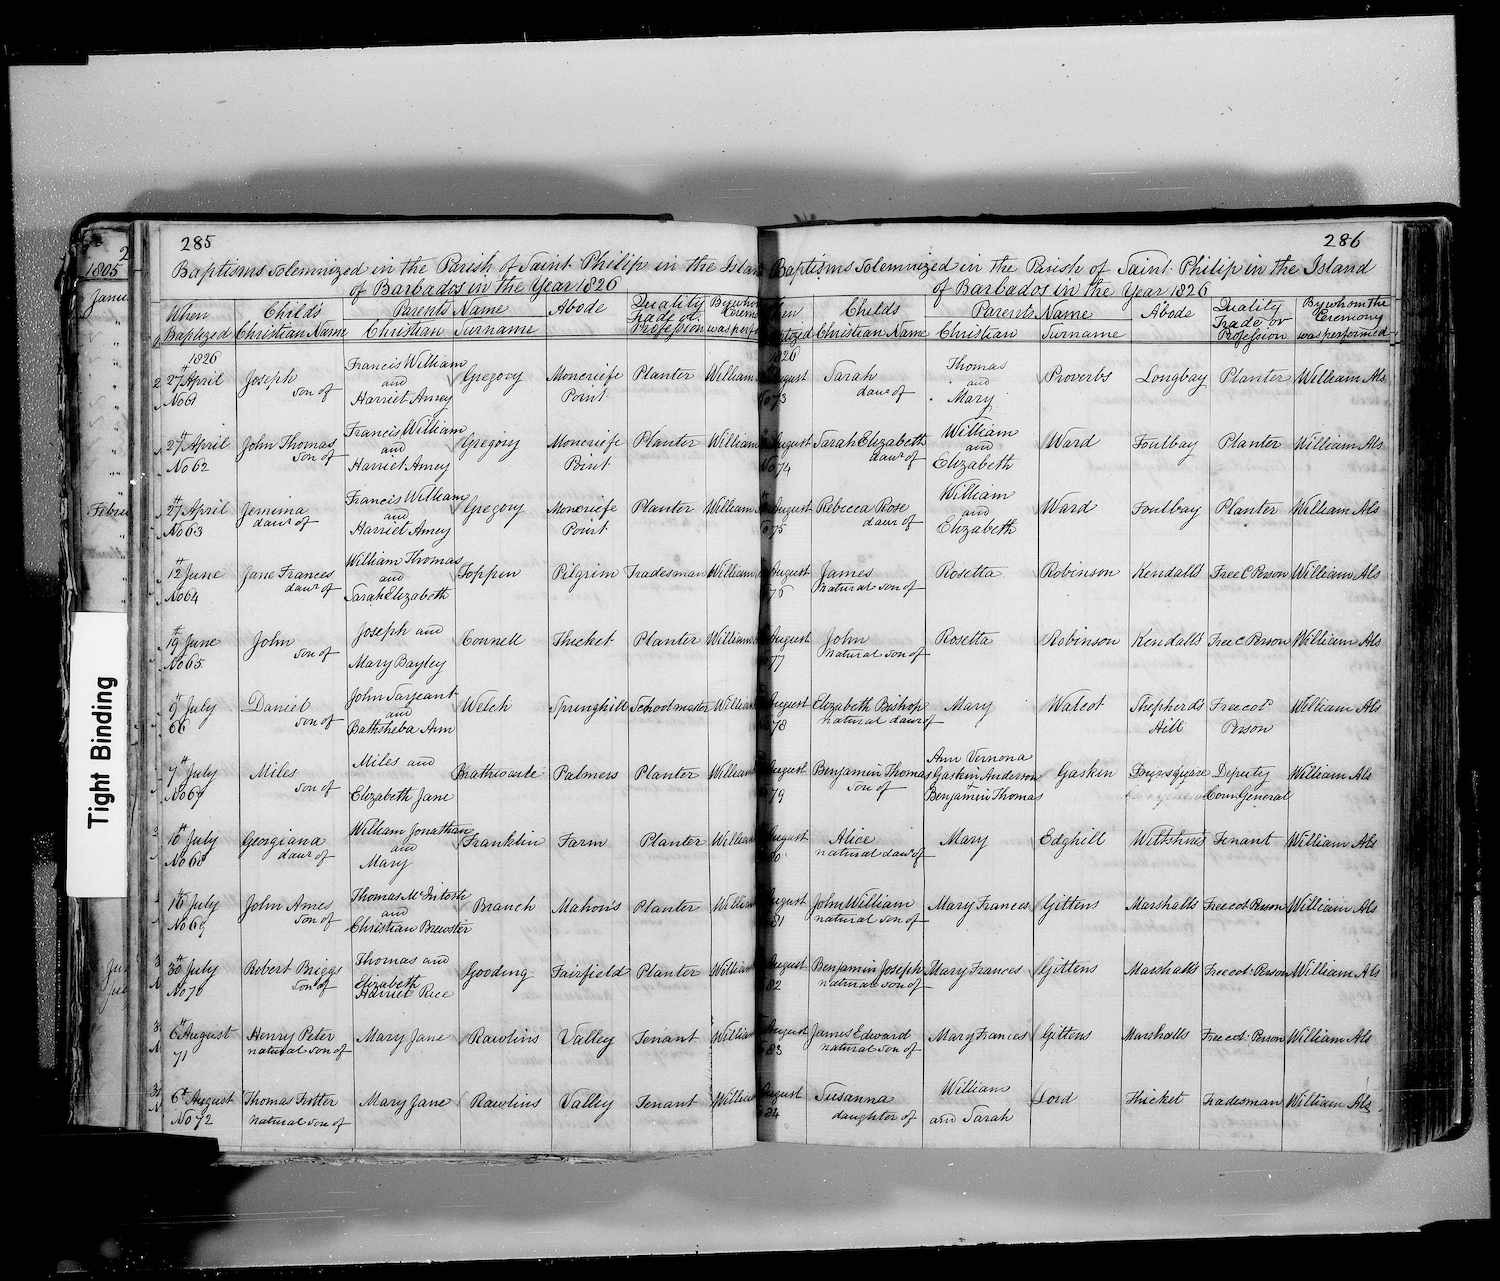 285
Baptisms solemnized in the Parish of Saint Philip in the Islan
of Barbados in the Year 1826
When Baptized Child's Christian Name Parents Name Christian Surname Abode Quality Trade or Profession By whom Cerem was perf
1826
27th April No 61 Joseph son of Francis William and Harriet Amey Gregory Moncriefe Point Planter William
27th April No 62 John Thomas son of Francis William and Harriet Amey Gregory Moncriefe Point Planter William
27th April No 63 Jemima daur of Francis William and Harriet Amey Gregory Moncriefe Point Planter William
12 June No 64 Jane Frances daur of William Thomas and Sarah Elizabeth Toppin Pilgrim Tradesman William
19th June No 65 John son of Joseph and Mary Bayley Connell Thicket Planter William
9th July 66 Daniel son of John Sarjeant and Bathsheba Ann Welch Springhill Schoolmaster William
7th July No 67 Miles son of Miles and Elizabeth Jane Brathwaite Palmers Planter William
16th July No 68 Georgiana daur of William Jonathan and Mary Franklin Farm Planter William
16th July No 69 John Ames son of Thomas McIntosh and Christian Brewster Branch Mahon's Planter William
30th July No 70 Robert Briggs son of Thomas and Elizabeth Harriet Rice Gooding Fairfield Planter William
6th August 71 Henry Peter natural son of Mary Jane Rawlins Valley Tenant William
6th August No 72 Thomas Trotter natural son of Mary Jane Rawlins Valley Tenant William
286
Baptisms solemnized in the Parish of Saint Philip in the Island
of Barbados in the Year 1826
Childs Christian Name Parents Name Christian Surname Abode Quality Trade or Profession By whom the Ceremony was performed
1826
August 73 Sarah daur of Thomas and Mary Proverbs Longbay Planter William Als
August 74 Sarah Elizabeth daur of William and Elizabeth Ward Foulbay Planter William Als
August 75 Rebecca Rose daur of William and Elizabeth Ward Foulbay Planter William Als
August 76 James natural son of Rosetta Robinson Kendalls Free C Person William Als
August 77 John natural son of Rosetta Robinson Kendalls Free C Person William Als
August 78 Elizabeth Bishop natural daur of Mary Walcot Shepherd's Hill Free cold Person William Als
August 79 Benjamin Thomas son of Ann Vernona Gaskin Anderson Benjamin Thomas Gaskin Deputy Com General William Als
August 80 Alice natural daur of Mary Edghill Wiltshires Tenant William Als
August 81 John William natural son of Mary Frances Gittens Marshalls Free col Person William Als
August 82 Benjamin Joseph natural son of Mary Frances Gittens Marshalls Free col: Person William Als
August 83 James Edward natural son of Mary Frances Gittens Marshalls Free col: Person William Als
August 84 Susanna daughter of William and Sarah Lord Thicket Tradesman William Als
1805
Janu
Febru
Tight Binding